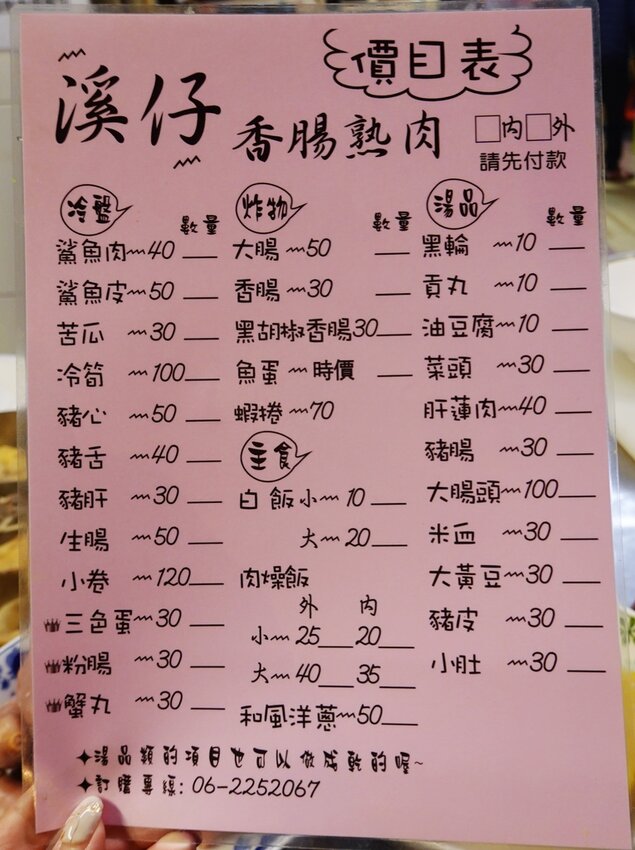 價目表
溪仔
香腸熟肉
□內□外
請先付款
冷盤
數量
鯊魚肉~40
鯊魚皮~50
苦瓜 ~30
冷筍 ~100
豬心 ~50
豬舌 ~40
豬肝 ~30
生腸 ~50
小卷 ~120
三色蛋~30
粉腸 ~30
蟹丸 ~30
炸物
數量
大腸 ~50
香腸 ~30
黑胡椒香腸30
魚蛋 ~時價
蝦捲 ~70
主食
白飯 小~10
大~20
肉燥飯
外 內
小~25 20
大~40 35
和風洋蔥~50
湯品
數量
黑輪 ~10
貢丸 ~10
油豆腐~10
菜頭 ~30
肝蓮肉~40
豬腸 ~30
大腸頭~100
米血 ~30
大黃豆~30
豬皮 ~30
小肚 ~30
✦湯品類的項目也可以做成乾的喔~
✦訂購專線: 06-2252067